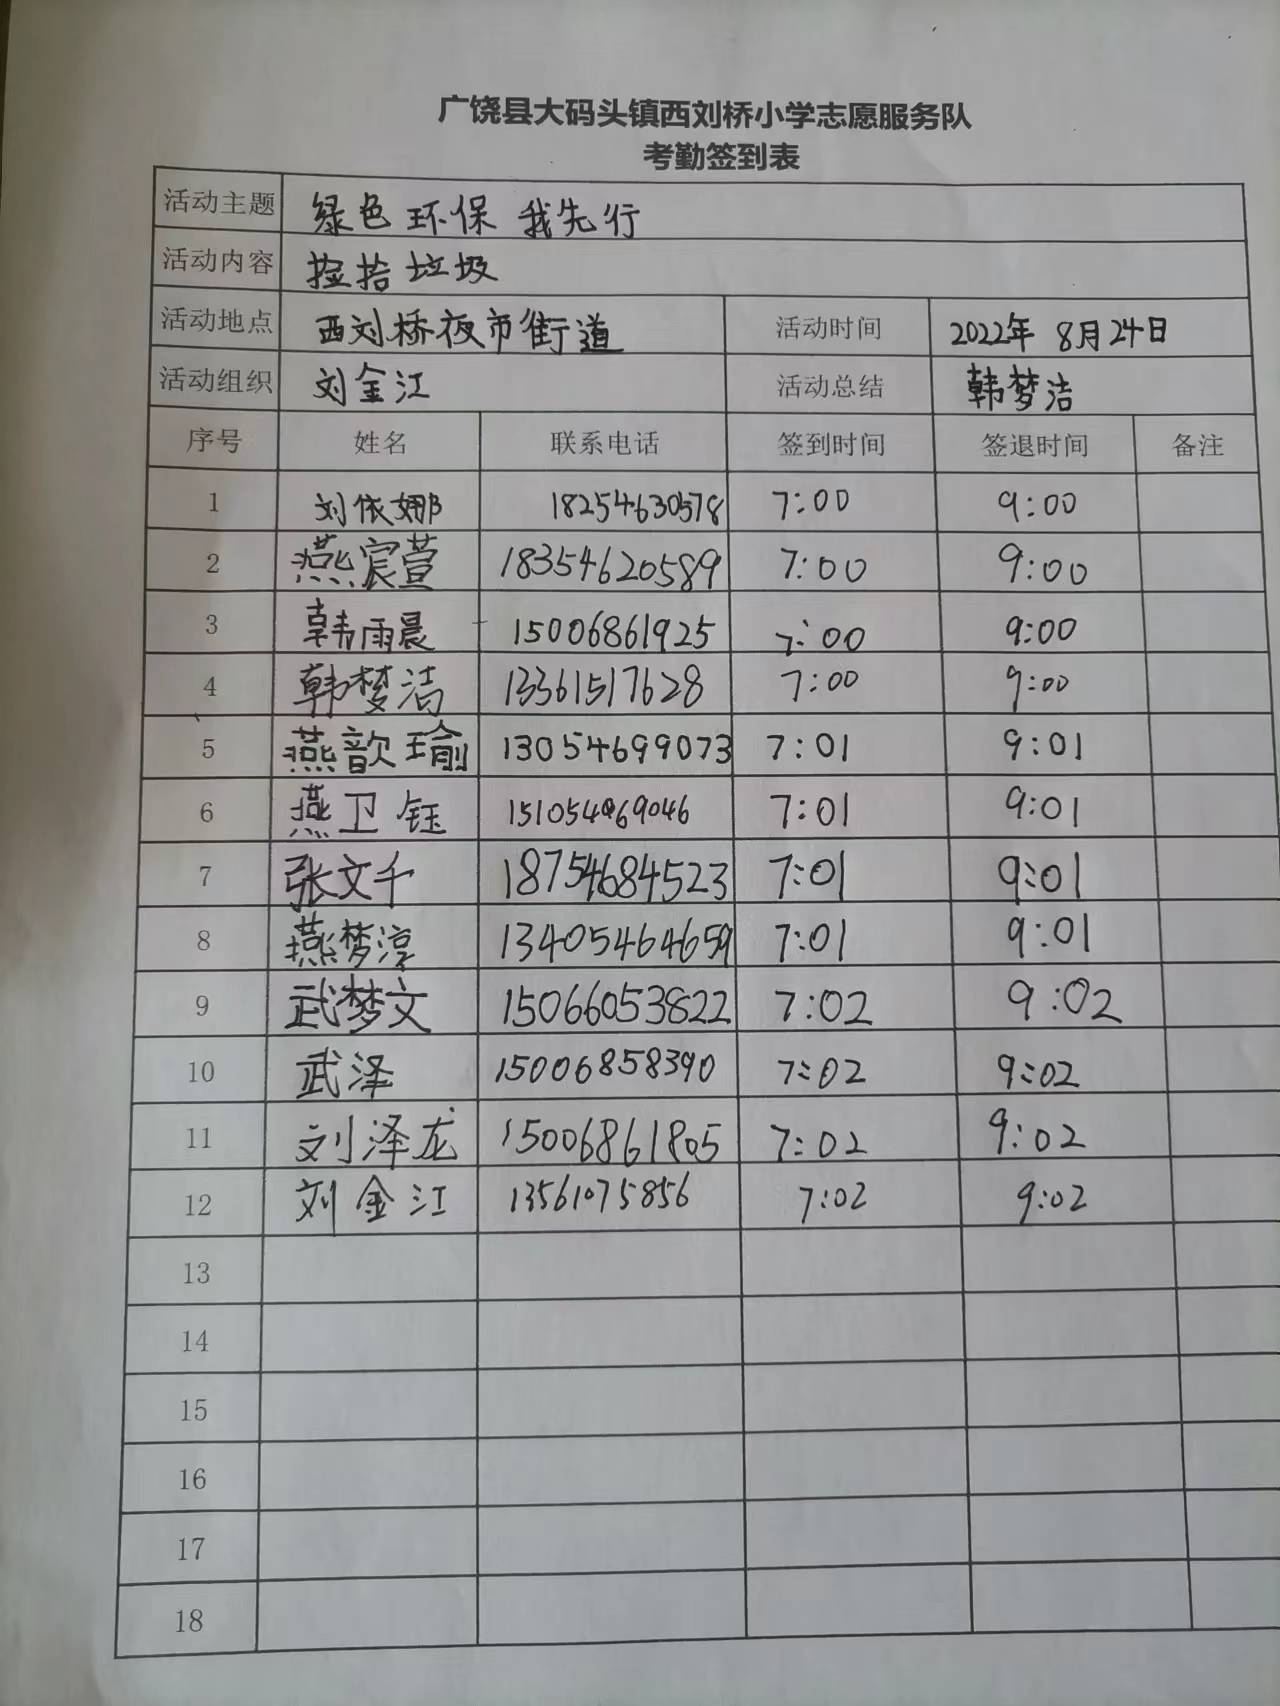 广饶县大码头镇西刘桥小学志愿服务队
考勤签到表
活动主题 绿色环保 我先行
活动内容 捡拾垃圾
活动地点 西刘桥夜市街道 活动时间 2022年 8月24日
活动组织 刘金江 活动总结 韩梦洁
序号 姓名 联系电话 签到时间 签退时间 备注
1 刘依娜 18254630578 7:00 9:00
2 燕宸萱 18354620589 7:00 9:00
3 韩雨晨 15006861925 7:00 9:00
4 韩梦洁 13361517628 7:00 9:00
5 燕歆瑜 13054699073 7:01 9:01
6 燕卫钰 7:01 9:01
7 张文千 18754684523 7:01 9:01
8 燕梦淳 13405464659 7:01 9:01
9 武梦文 15066053822 7:02 9:02
10 武泽 15006858390 7:02 9:02
11 刘泽龙 15006861805 7:02 9:02
12 刘金江 13561075856 7:02 9:02
13
14
15
16
17
18